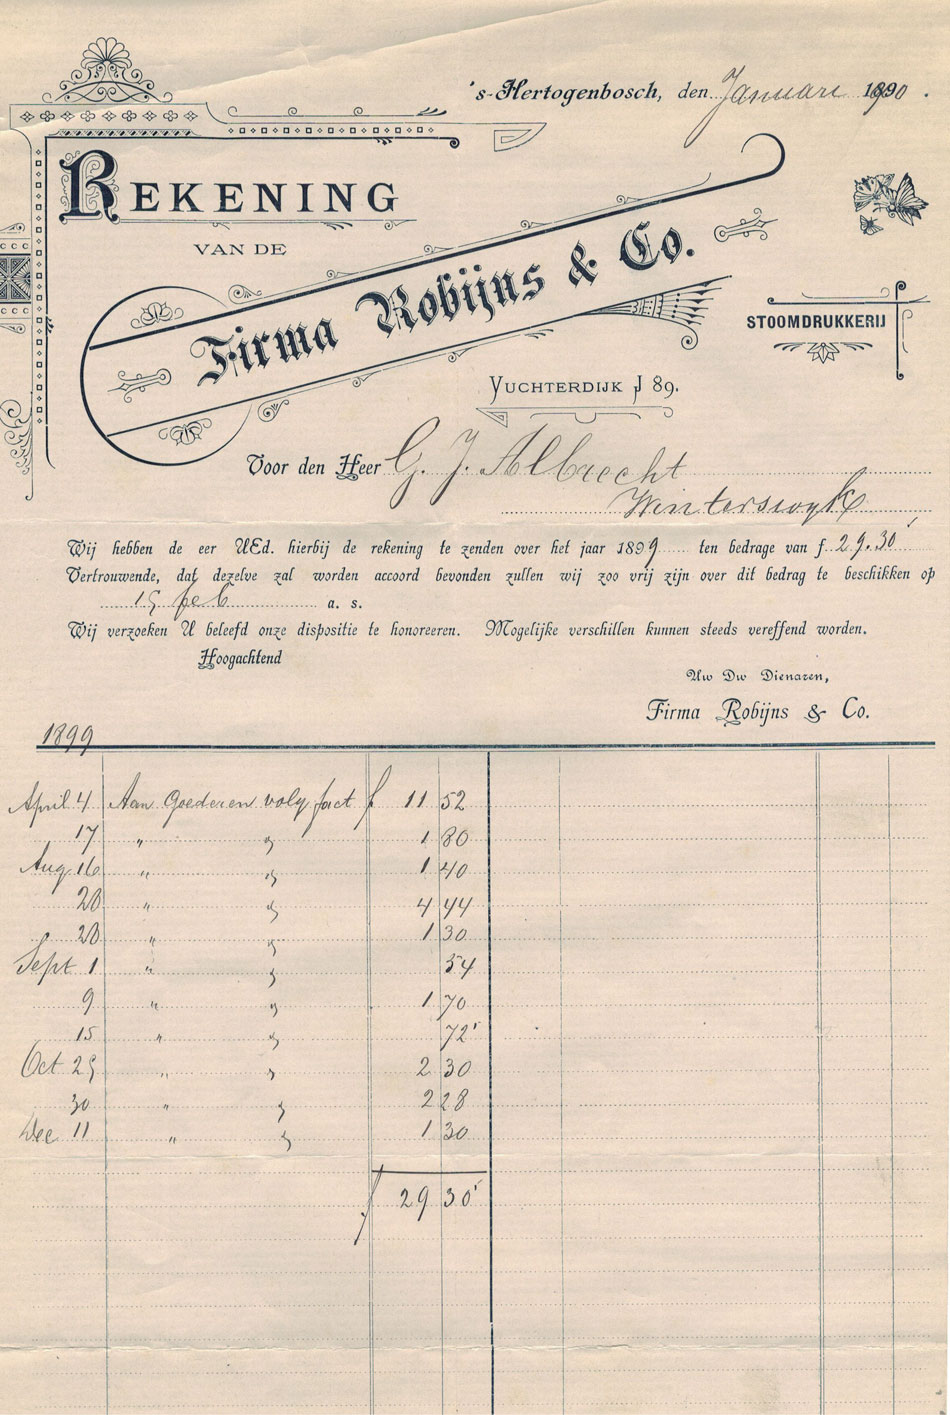 's-Hertogenbosch, den Januari 1890.
REKENING
VAN DE
Firma Robijns & Co.
STOOMDRUKKERIJ
VUCHTERDIJK J 89.
Voor den Heer G. J. Albrecht
Winterswyk
Wij hebben de eer UEd. hierbij de rekening te zenden over het jaar 1899 ten bedrage van f 29.30'
Vertrouwende, dat dezelve zal worden accoord bevonden zullen wij zoo vrij zijn over dit bedrag te beschikken op
15 feb a. s.
Wij verzoeken U beleefd onze dispositie te honoreeren. Mogelijke verschillen kunnen steeds vereffend worden.
Hoogachtend
Uw Dw Dienaren,
Firma Robijns & Co.
1899
April 4 Aan Goederen volg fact f 11 52
17 " " 1 80
Aug 16 " " 1 40
20 " " 4 44
20 " " 1 30
Sept 1 " " 54
9 " " 1 70
15 " " 72'
Oct 25 " " 2 30
30 " " 2 28
Dec 11 " " 1 30
f 29 30'